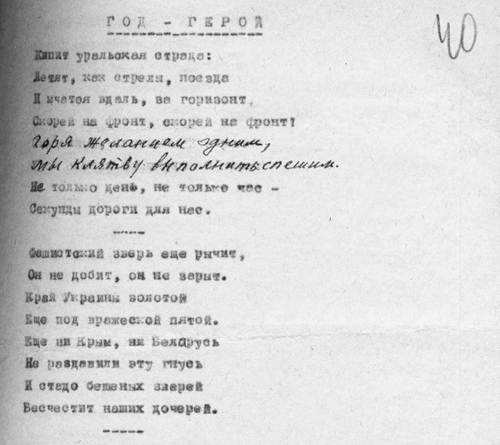 ГОД - ГЕРОЙ
40
Кипит уральская страда:
Летят, как стрелы, поезда
И мчатся вдаль, за горизонт,
Скорей на фронт, скорей на фронт!
Горя желанием одним,
мы клятву выполнить спешим.
Не только день, не только час -
Секунды дороги для нас.
-----
Фашистский зверь еще рычит,
Он не добит, он не зарыт.
Край Украины золотой
Еще под вражеской пятой.
Еще ни Крым, ни Беларусь
Не раздавили эту гнусь
И стадо бешеных зверей
Бесчестит наших дочерей.
-----